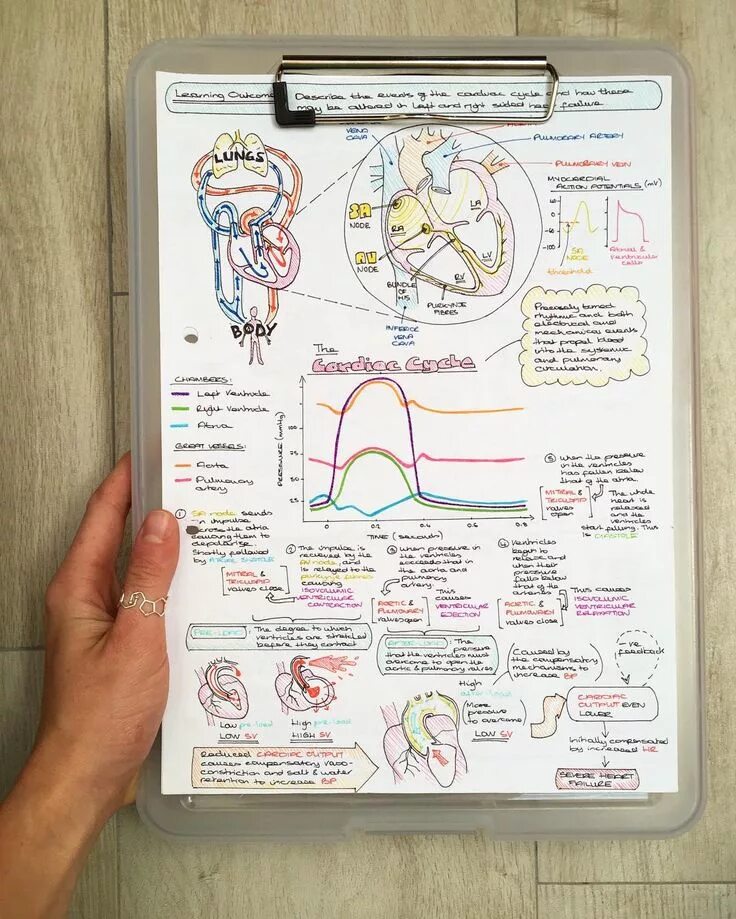 Learning Outcome: Describe the events of the cardiac cycle and how these
may be altered in left and right sided heart failure
LUNGS
BODY
VENA
CAVA
PULMONARY ARTERY
PULMONARY VEIN
SA
NODE
AV
NODE
RA
LA
LV
RV
BUNDLE
OF
HIS
PURKINJE
FIBRES
INFERIOR
VENA
CAVA
MYOCARDIAL
ACTION POTENTIALS (mV)
-100
SA
NODE
threshold
Atrial &
ventricular
cells
Precisely timed
rhythmic and both
electrical and
mechanical events
that propel blood
into the systemic
and pulmonary
circulation.
The
Cardiac Cycle
CHAMBERS:
Left Ventricle
Right Ventricle
Atria
GREAT VESSELS:
Aorta
Pulmonary
artery
PRESSURE (mmHg)
100
75
50
25
0
0.2
0.4
0.6
0.8
TIME (seconds)
① SA node sends
an impulse
across the atria
causing them to
depolarise.
Shortly followed
by ATRIAL SYSTOLE
② The impulse is
recieved by the
AV node, and
is relayed to the
purkinje fibres
causing
ISOVOLUMIC
VENTRICULAR
CONTRACTION
MITRAL &
TRICUSPID
valves close
③ When pressure in
the ventricles
exceeds that in
the aorta and
pulmonary
artery
AORTIC &
PULMONARY
valves open
This
causes
VENTRICULAR
EJECTION
④ Ventricles
begin to
relax and
when their
pressure
falls below
that of the
arteries
AORTIC &
PULMONARY
valves close
This causes
ISOVOLUMIC
VENTRICULAR
RELAXATION
⑤ When the pressure
in the ventricles
has fallen below
that of the atria
MITRAL &
TRICUSPID
valves open
The whole
heart is
relaxed and
the ventricles
start filling. This
is DIASTOLE
PRE-LOAD: The degree to which
ventricles are stretched
before they contract
Low pre-load
LOW SV
High pre-load
HIGH SV
AFTER-LOAD: The
pressure
that the ventricles must
overcome to open the
aortic & pulmonary valves
High
after-load
(More
pressure
to overcome)
LOW SV
Reduced CARDIAC OUTPUT
causes compensatory vaso-
constriction and salt & water
retention to increase BP
Caused by
the compensatory
mechanisms to
increase BP
+ve
feedback
CARDIAC
OUTPUT EVEN
LOWER
Initially compensated
by increased HR
SEVERE HEART
FAILURE